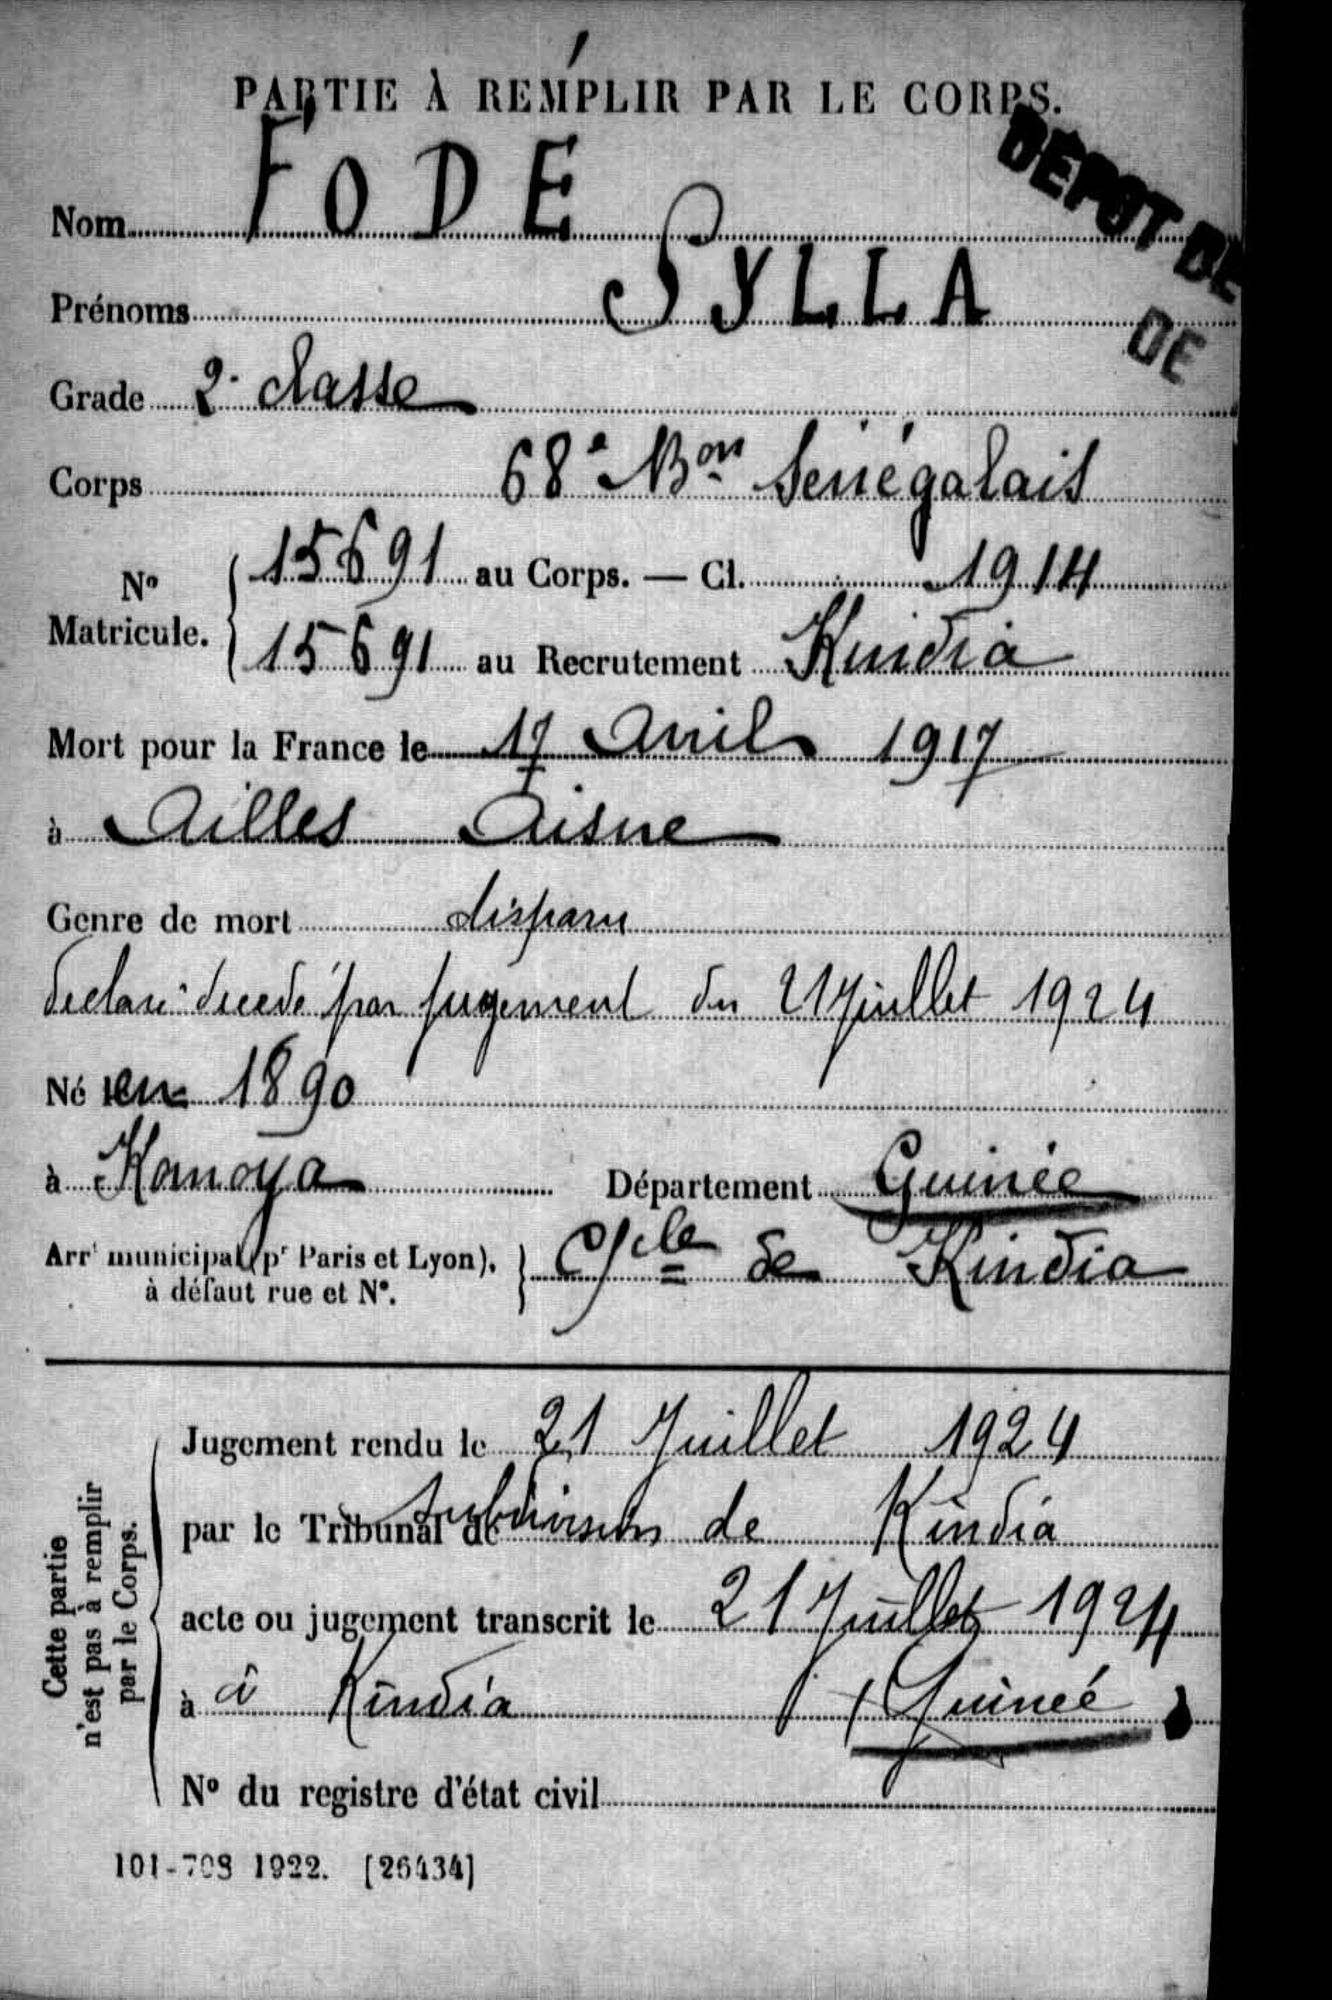 PARTIE À REMPLIR PAR LE CORPS.
DÉPOT DE
DE
Nom FODÉ
Prénoms SYLLA
Grade 2e classe
Corps 68e Bon Sénégalais
No Matricule. 15691 au Corps. — Cl. 1914
15691 au Recrutement Kindia
Mort pour la France le 17 Avril 1917
à Ailles Aisne
Genre de mort disparu
déclaré décédé par jugement du 21 Juillet 1924
Né en 1890
à Kanoya Département Guinée
Arrt municipal (pr Paris et Lyon), à défaut rue et No. } Cercle de Kindia
Cette partie n'est pas à remplir par le Corps.
Jugement rendu le 21 Juillet 1924
par le Tribunal de subdivision de Kindia
acte ou jugement transcrit le 21 Juillet 1924
à à Kindia (Guinée)
No du registre d'état civil
101-708 1922. [26434]